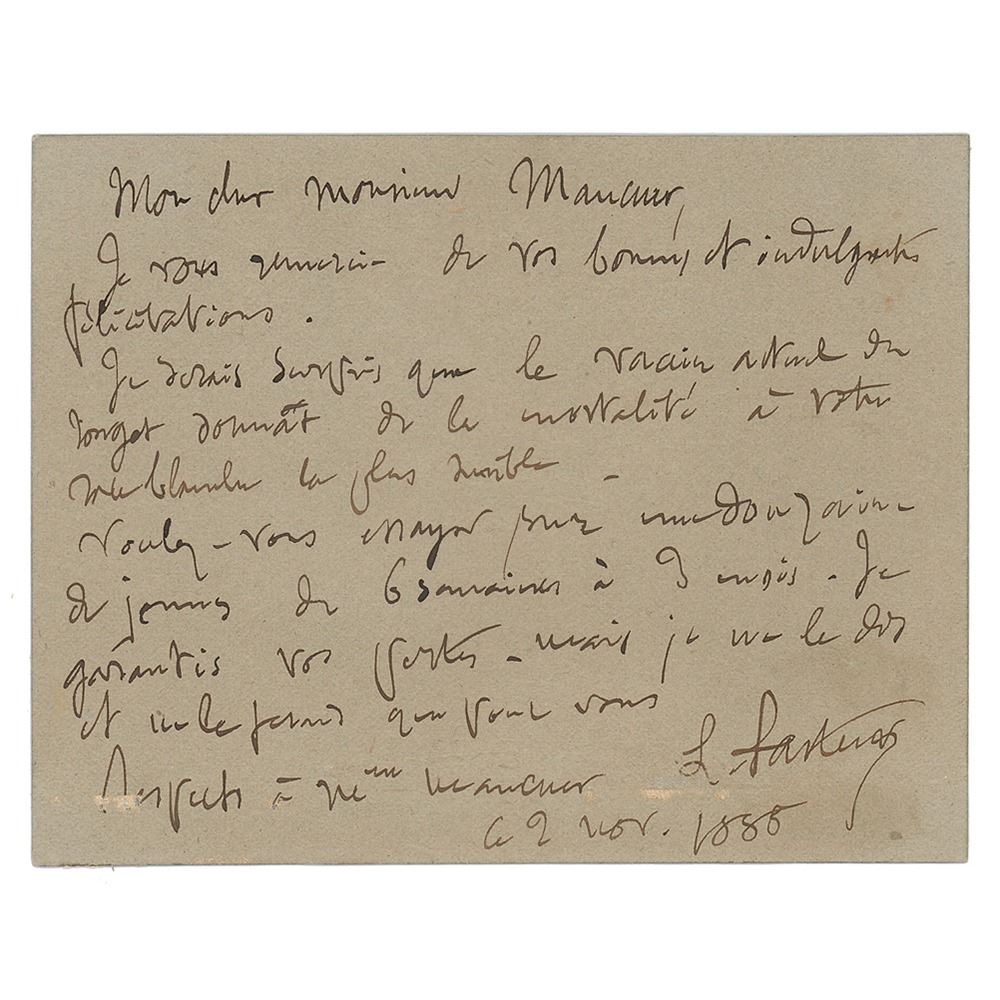 Mon cher monsieur Maucuer,
Je vous remercie de vos bonnes et indulgentes
félicitations.
Je serais surpris que le vaccin actuel du
rouget donnât de la mortalité à votre
race blanche la plus sensible –
Voulez-vous essayer sur une douzaine
de jeunes de 6 semaines à 3 mois. Je
garantis vos pertes – mais je ne le dis
et ne le ferais que pour vous
L. Pasteur
Respects à Me Maucuer
Ce 2 nov. 1886